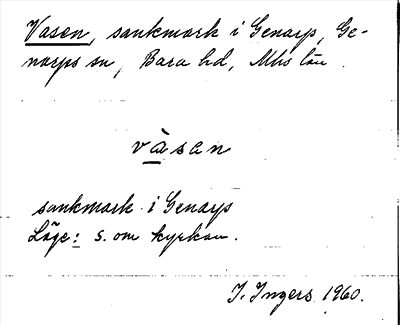 Vasen, sankmark i Genarp, Ge-
narps sn, Bara hd, Mhs län.
vàsan
sankmark i Genarp
Läge: s. om kyrkan.
I. Ingers 1960.